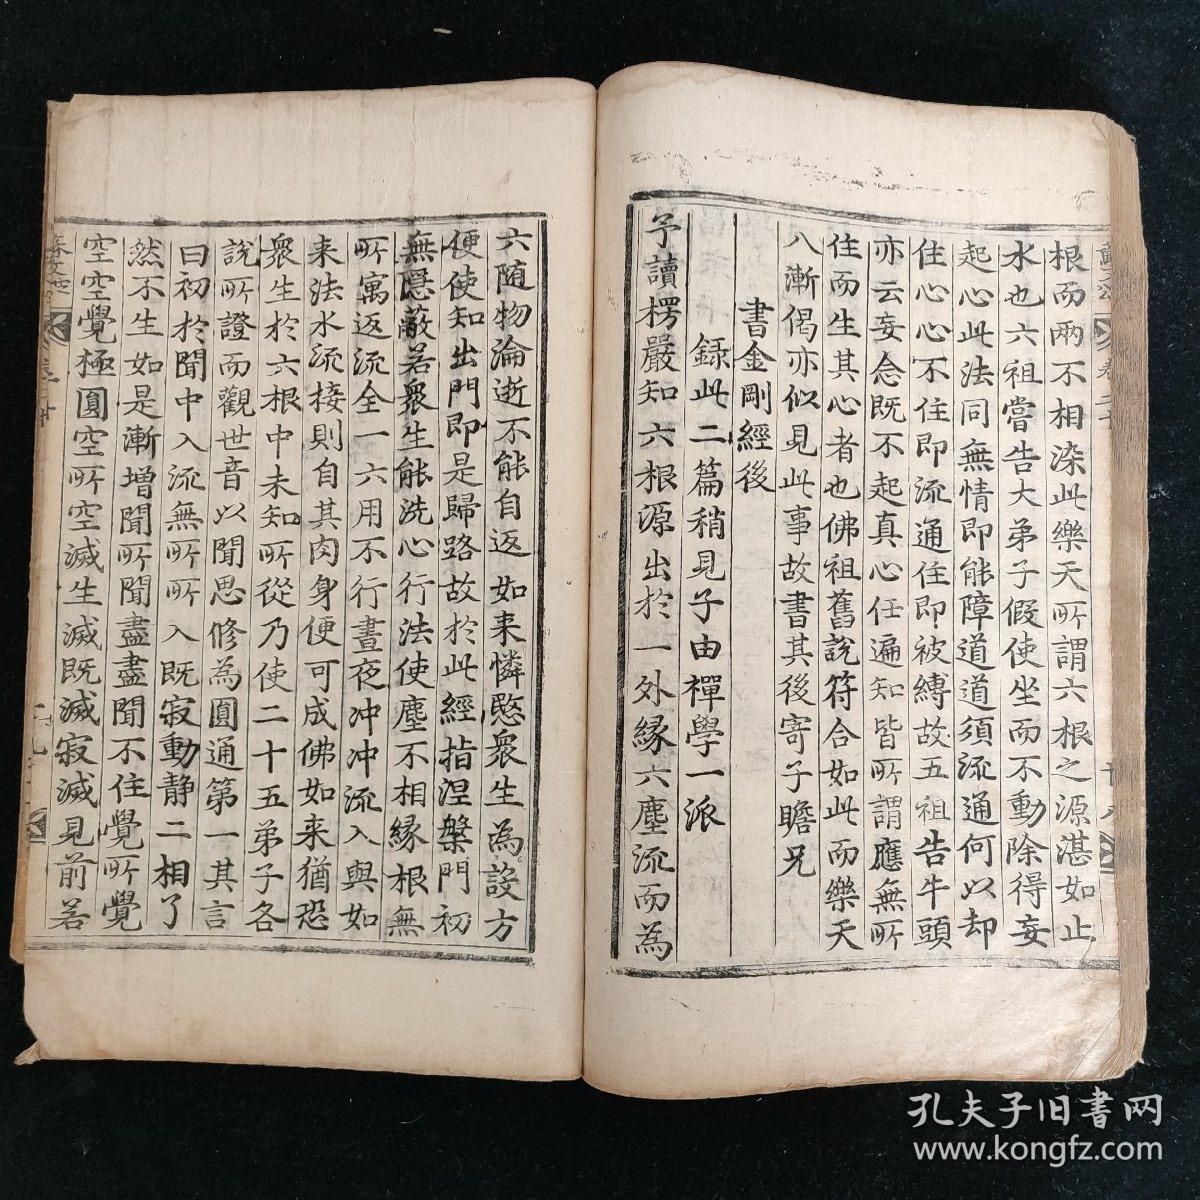 根而兩不相染此樂天所謂六根之源湛如止
水也六祖嘗告大弟子假使坐而不動除得妄
起心此法同無情即能障道道須流通何以却
住心心不住即流通住即被縛故五祖告牛頭
亦云妄念既不起真心任遍知皆所謂應無所
住而生其心者也佛祖舊說符合如此而樂天
八漸偈亦似見此事故書其後寄子瞻兄
書金剛經後
錄此二篇稍見子由禪學一派
予讀楞嚴知六根源出於一外緣六塵流而為
六随物淪逝不能自返如来憐愍衆生為設方
便使知出門即是歸路故於此經指涅槃門初
無隱蔽若衆生能洗心行法使塵不相緣根無
所寓返流全一六用不行晝夜冲冲流入與如
来法水流接則自其肉身便可成佛如来猶恐
衆生於六根中未知所從乃使二十五弟子各
說所證而觀世音以聞思修為圓通第一其言
曰初於聞中入流無所所入既寂動静二相了
然不生如是漸增聞所聞盡盡聞不住覺所覺
空空覺極圓空所空滅生滅既滅寂滅見前若
孔夫子旧書网
www.kongfz.com